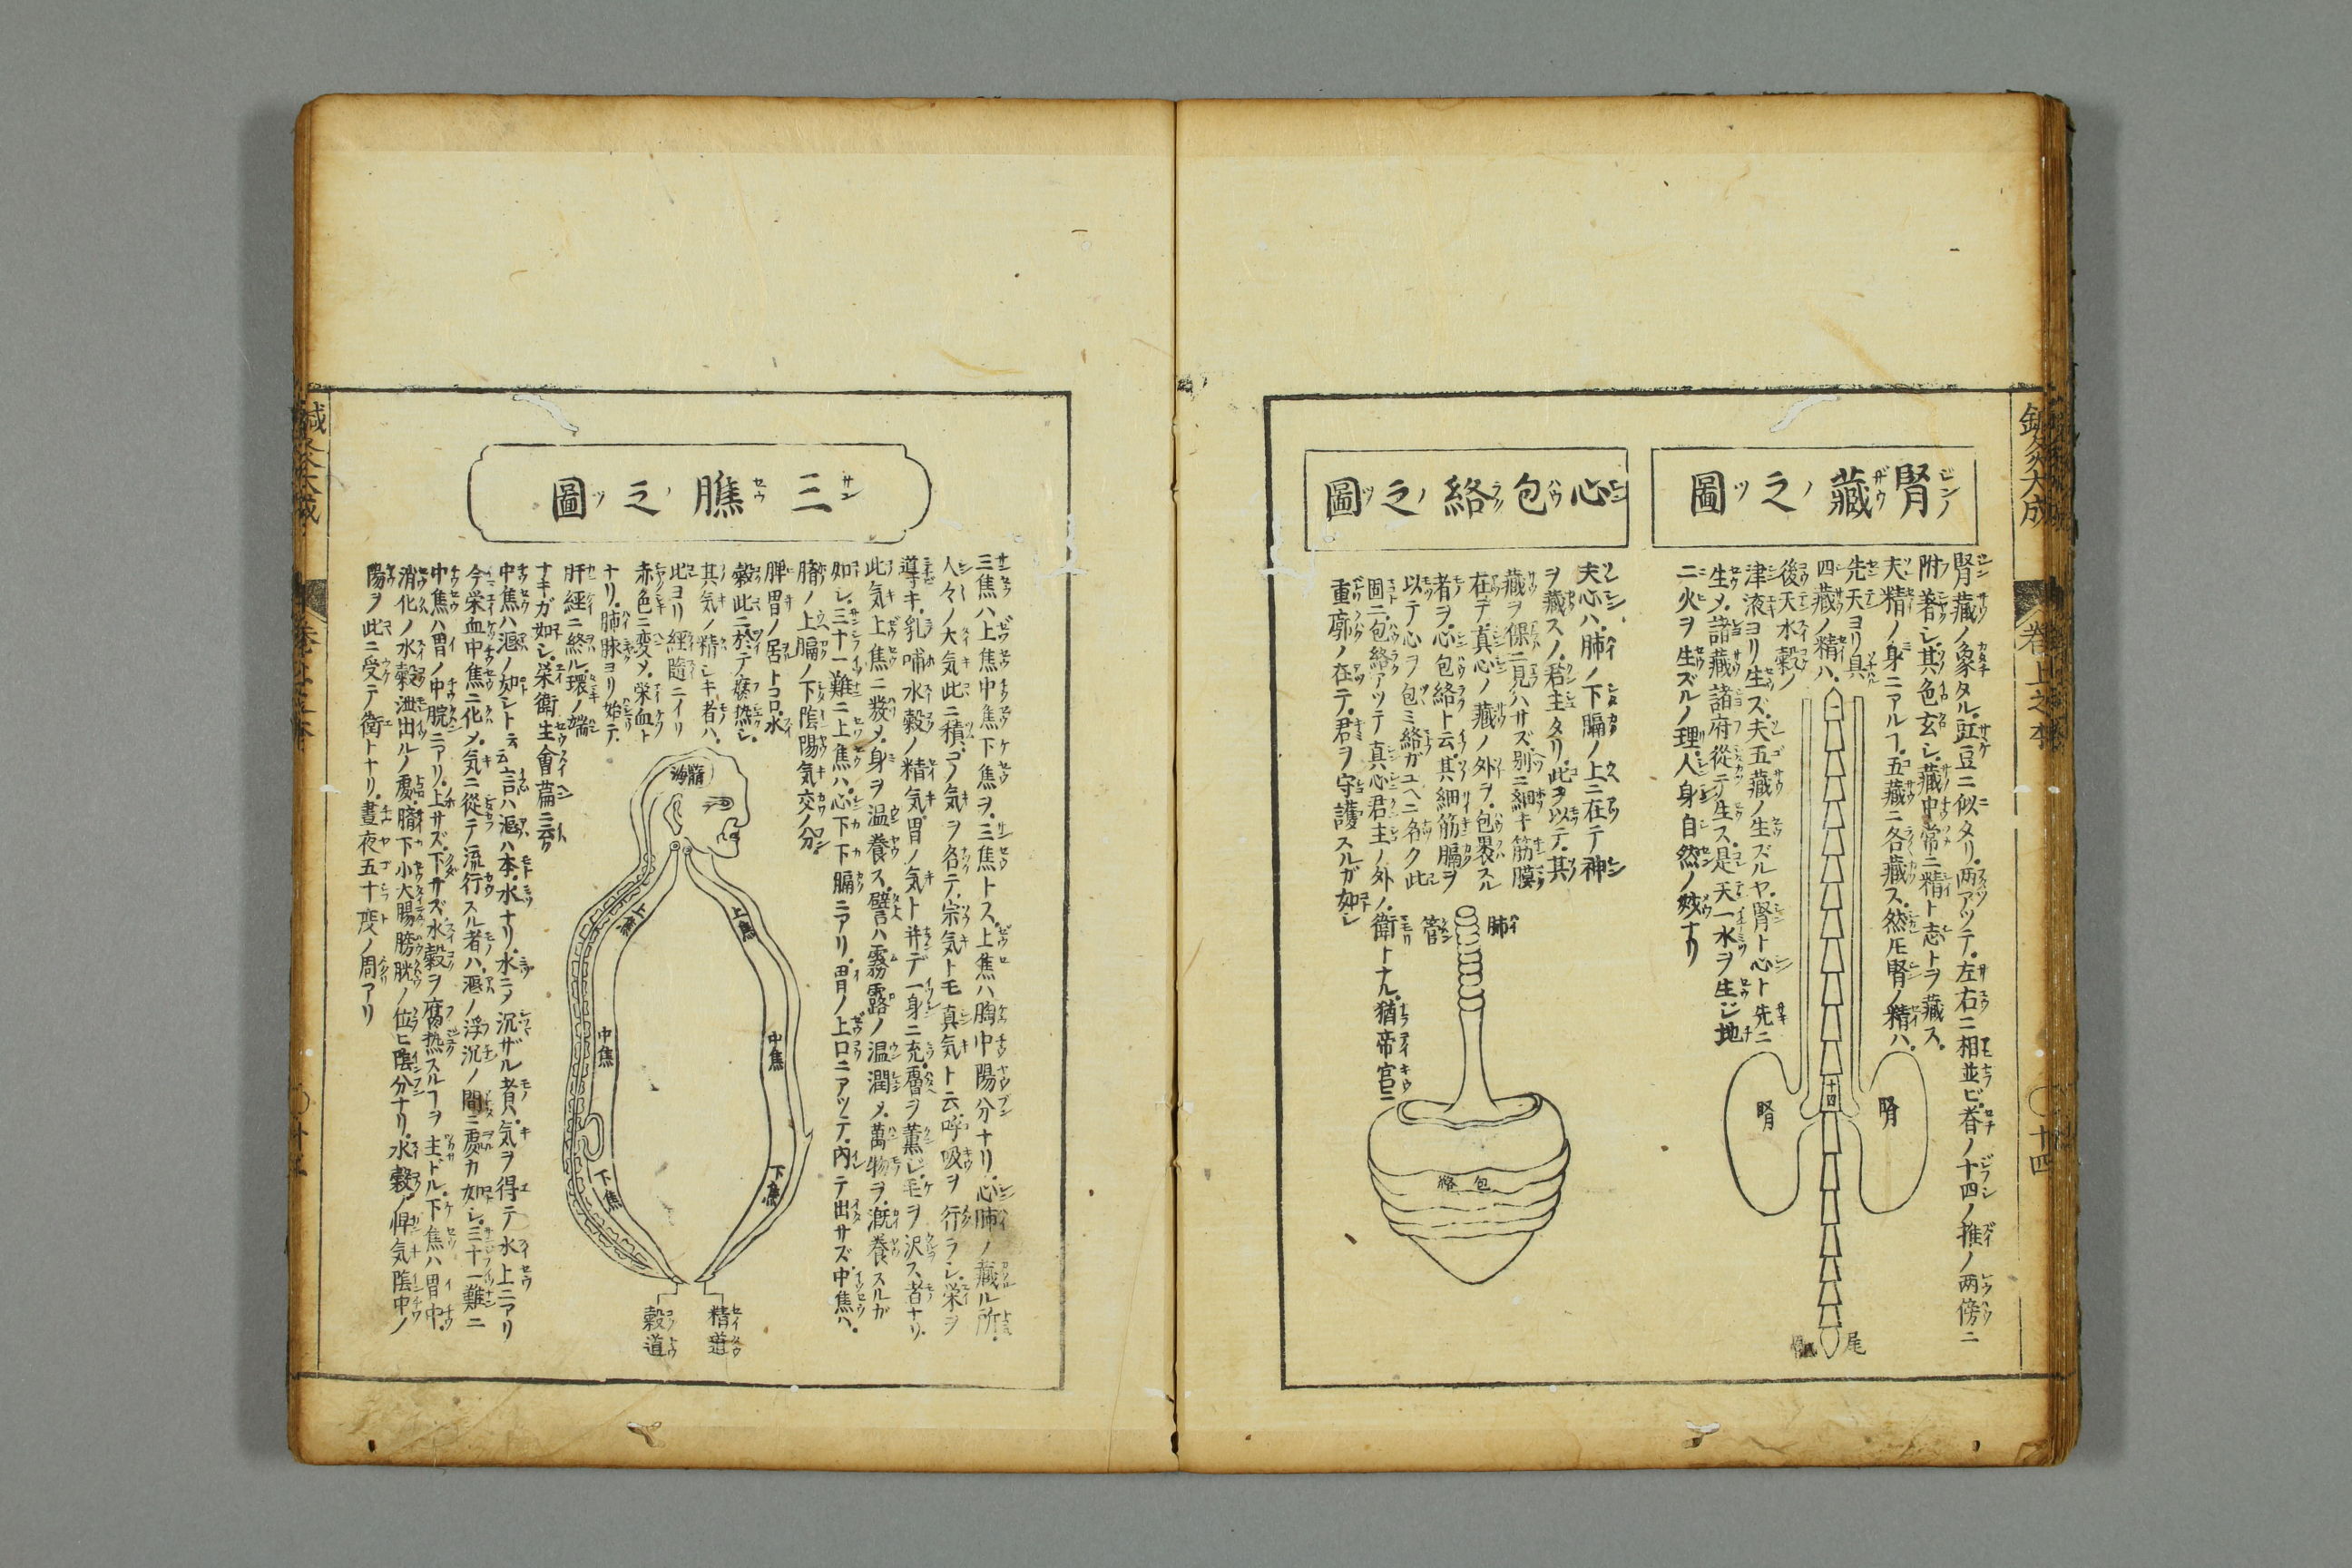 鍼灸大成
卷上之本
〇十四
腎藏之圖
腎藏ノ象タル豇豆ニ似タリ両アツテ左右ニ相並ビ脊ノ十四ノ推ノ两傍ニ
附著シ其色玄シ藏中常ニ精ト志トヲ藏ス
夫精ノ身ニアルヿ五藏ニ各藏ス然𪜈腎ノ精ハ
先天ヨリ具
四藏ノ精ハ
後天水穀ノ
津液ヨリ生ズ夫五藏ノ生ズルヤ腎ト心ト先ニ
生メ諸藏諸府從テ生ス是天一水ヲ生ジ地
二火ヲ生ズルノ理人身自然ノ妙ナリ
一
十四
腎
腎
尾
心包絡之圖
夫心ハ肺ノ下膈ノ上ニ在テ神
ヲ藏スノ君主タリ此ヲ以テ其
藏ヲ保ニ見ハサズ别ニ細キ筋膜
在テ真心ノ藏ノ外ヲ包裹スル
者ヲ心包絡ト云其細筋膈ヲ
以テ心ヲ包ミ絡ガユヘニ名ク此
圖ニ包絡アツテ真心君主ノ外ノ衛トナル猶帝宮ニ
重廓ノ在テ君ヲ守護スルガ如シ
肺
管
包絡
三膲之圖
三焦ハ上焦中焦下焦ヲ三焦トス上焦ハ胸中陽分ナリ心肺ノ藏ル所
人々ノ大気此ニ積コノ気ヲ名テ宗気トモ真気ト云呼吸ヲ行ラシ栄ヲ
導キ乳哺水穀ノ精気胃ノ気ト并デ一身ニ充層ヲ薫シ毛ヲ沢ス者ナリ
此気上焦ニ發メ身ヲ温養ス譬ハ霧露ノ温潤メ萬物ヲ漑養スルガ
如シ三十一難ニ上焦ハ心下下膈ニアリ胃ノ上口ニアツテ内テ出サズ中焦ハ
臍ノ上膈ノ下陰陽気交ノ分
脾胃ノ居トコロ水
穀此ニ於テ腐熱シ
其気ノ精シキ者ハ
此ヨリ經隨ニイリ
赤色ニ変メ栄血ト
ナリ肺脉ヨリ始テ
肝經ニ終ル環ノ端
ナキガ如シ栄衛生會篇ニ云ク
中焦ハ漚ノ如シト云言ハ漚ハ本水ナリ水ニメ沉ザル者気ヲ得テ水上ニアリ
今栄血中焦ニ化メ気ニ從テ流行スル者ハ漚ノ浮沉ノ間ニ處カ如シ三十一難ニ
中焦ハ胃ノ中脘ニアリ上サズ下サズ水穀ヲ腐热スルヿヲ主ドル下焦ハ胃中
消化ノ水穀泄出ルノ處臍下小大腸膀胱ノ位ヒ陰分ナリ水穀ノ悍気陰中ノ
陽ヲ此ニ受テ衛トナリ晝夜五十度ノ周アリ
髓海
上焦
上焦
中焦
中焦
下焦
下焦
精道
穀道